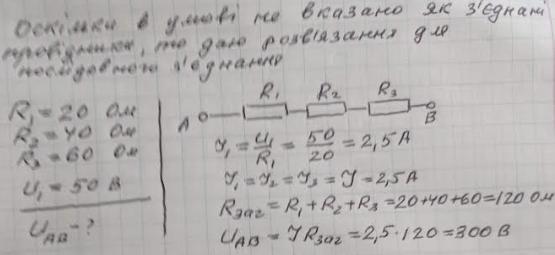 Оскільки в умові не вказано як з'єднані
провідники, то даю розв'язання для
послідовного з'єднання
R₁=20 Ом
R₂=40 Ом
R₃=60 Ом
U₁=50 В
U_AB-?
A R₁ R₂ R₃ B
I₁=U₁/R₁=50/20=2,5 A
I₁=I₂=I₃=I=2,5A
Rзаг=R₁+R₂+R₃=20+40+60=120 Ом
U_AB=IRзаг=2,5·120=300 В